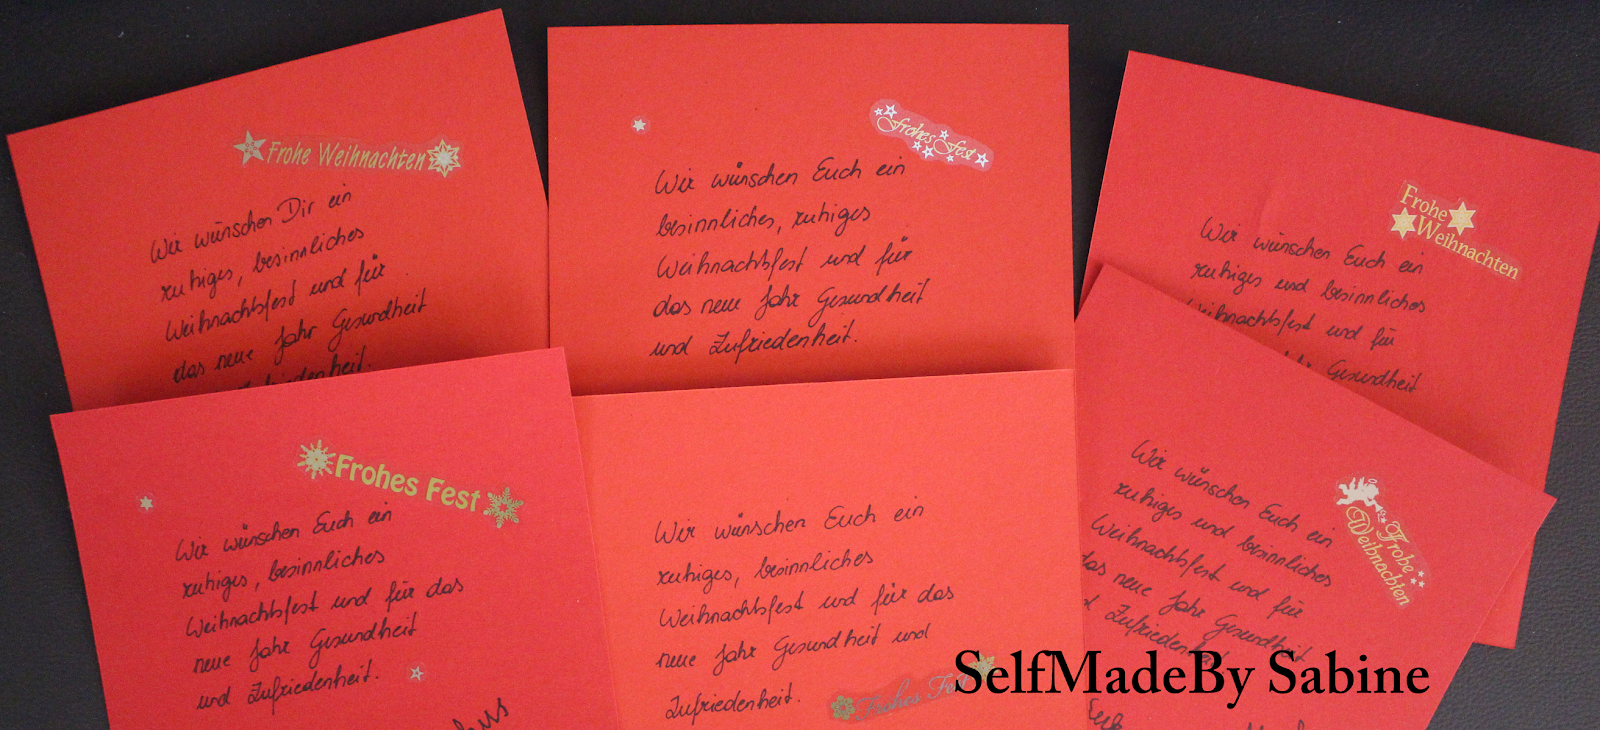 Frohe Weihnachten
Wir wünschen Dir ein
ruhiges, besinnliches
Weihnachtsfest und für
das neue Jahr Gesundheit
Zufriedenheit.
frohes Fest
Wir wünschen Euch ein
besinnliches, ruhiges
Weihnachtsfest und für
das neue Jahr Gesundheit
und Zufriedenheit.
Frohe
Weihnachten
Wir wünschen Euch ein
ruhiges und besinnliches
Weihnachtsfest und für
Gesundheit
Frohes Fest
Wir wünschen Euch ein
ruhiges, besinnliches
Weihnachtsfest und für das
neue Jahr Gesundheit
und Zufriedenheit.
Wir wünschen Euch ein
ruhiges, besinnliches
Weihnachtsfest und für das
neue Jahr Gesundheit und
Zufriedenheit.
Frohes Fest
Frohe
Weihnachten
Wir wünschen Euch ein
ruhiges und besinnliches
Weihnachtsfest und für
das neue Jahr Gesundheit
Zufriedenheit
SelfMadeBy Sabine